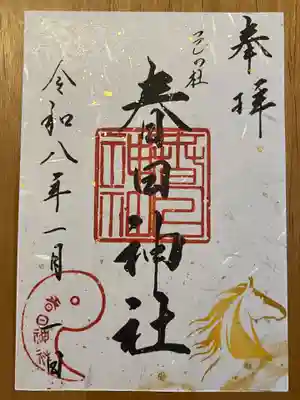 奉拝
の杜
春日神社
令和八年一月一日
春日神社
春日神社